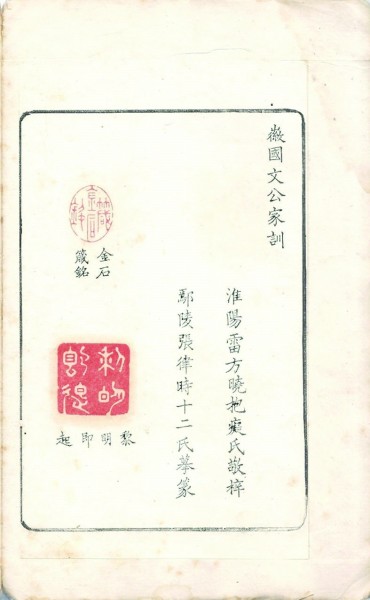 徽國文公家訓
淮陽雷方曉抱癡氏敬梓
鄢陵張律時十二氏摹篆
金石
箴銘
黎明
即起
黎明即起